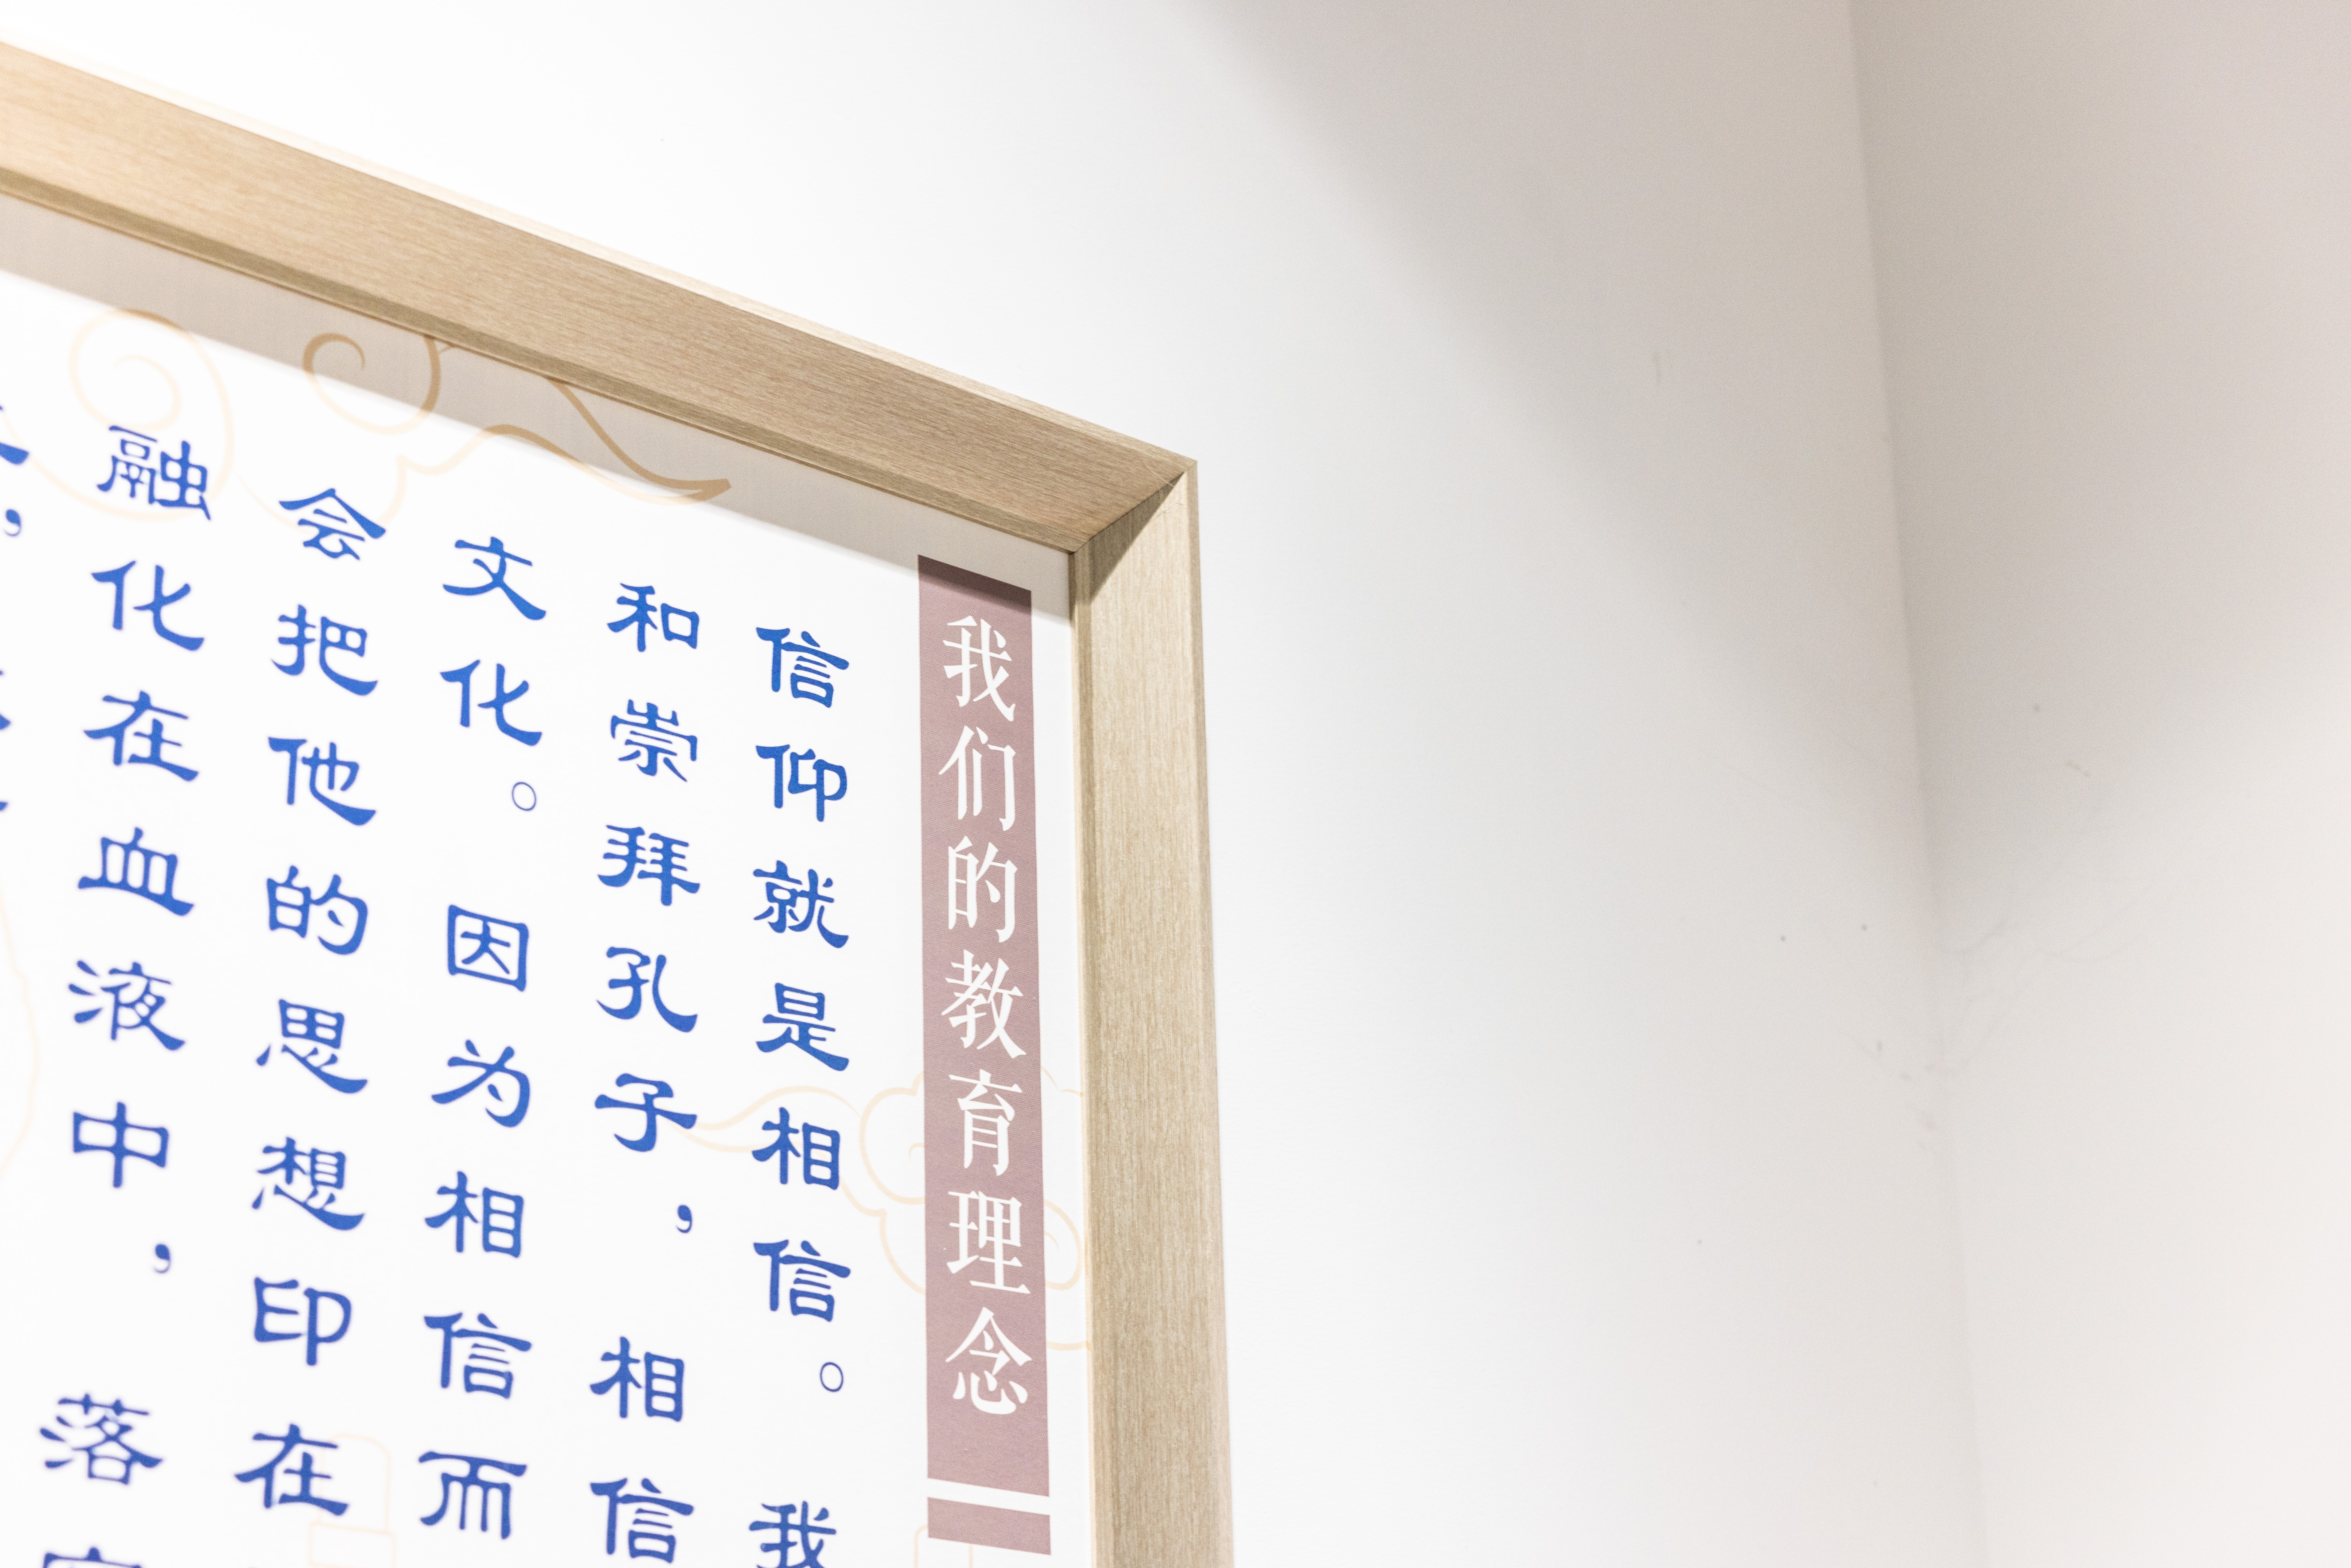 我们的教育理念
信仰就是相信。我
和崇拜孔子，相信
文化。因为相信而
会把他的思想印在
融化在血液中，落